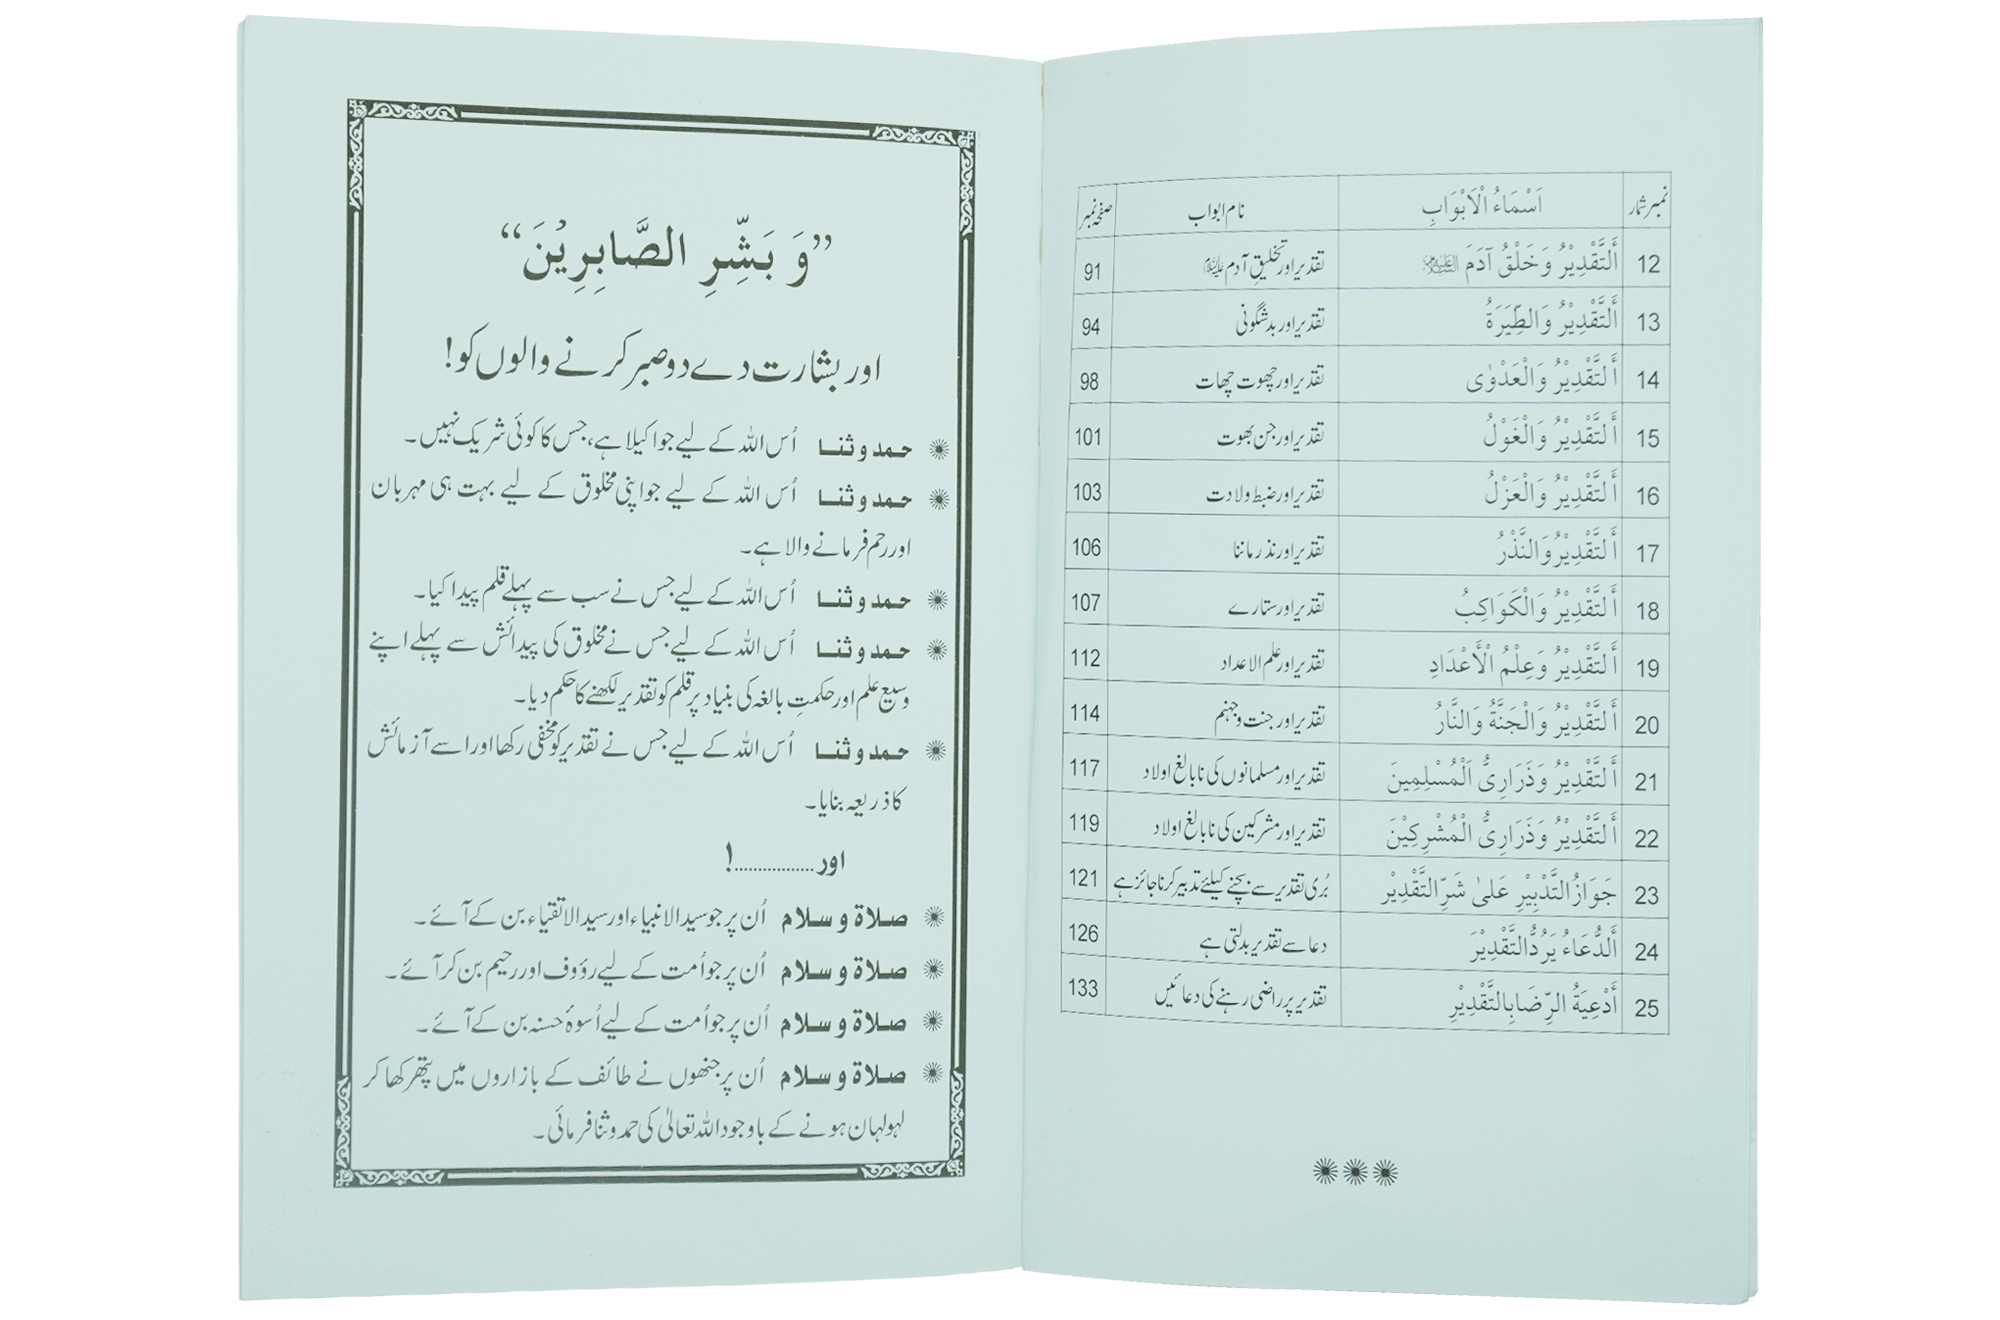 نمبر شمار	اَسْمَاءُ الْاَبْوَابِ	نام ابواب	صفحہ نمبر
12	أَلتَّقْدِيْرُ وَخَلْقُ آدَمَ عَلَيْهِ السَّلَام	تقدیر اور تخلیقِ آدم علیہ السلام	91
13	أَلتَّقْدِيْرُ وَالطِّيَرَةُ	تقدیر اور بدشگونی	94
14	أَلتَّقْدِيْرُ وَالْعَدْوٰى	تقدیر اور چھوت چھات	98
15	أَلتَّقْدِيْرُ وَالْغَوْلُ	تقدیر اور جن بھوت	101
16	أَلتَّقْدِيْرُ وَالْعَزْلُ	تقدیر اور ضبط ولادت	103
17	أَلتَّقْدِيْرُ وَالنَّذْرُ	تقدیر اور نذر ماننا	106
18	أَلتَّقْدِيْرُ وَالْكَوَاكِبُ	تقدیر اور ستارے	107
19	أَلتَّقْدِيْرُ وَعِلْمُ الْأَعْدَادِ	تقدیر اور علم الاعداد	112
20	أَلتَّقْدِيْرُ وَالْجَنَّةُ وَالنَّارُ	تقدیر اور جنت و جہنم	114
21	أَلتَّقْدِيْرُ وَذَرَارِيُّ اَلْمُسْلِمِينَ	تقدیر اور مسلمانوں کی نابالغ اولاد	117
22	أَلتَّقْدِيْرُ وَذَرَارِيُّ الْمُشْرِكِيْنَ	تقدیر اور مشرکین کی نابالغ اولاد	119
23	جَوَازُ التَّدْبِيْرِ عَلىٰ شَرِّ التَّقْدِيْرِ	بُری تقدیر سے بچنے کیلئے تدبیر کرنا جائز ہے	121
24	أَلدُّعَاءُ يَرُدُّ التَّقْدِيْرَ	دعا سے تقدیر بدلتی ہے	126
25	أَدْعِيَةُ الرِّضَا بِالتَّقْدِيْرِ	تقدیر پر راضی رہنے کی دعائیں	133
”وَ بَشِّرِ الصَّابِرِيْنَ“
اور بشارت دے دو صبر کرنے والوں کو!
حمد و ثنا اُس اللہ کے لیے جو اکیلا ہے، جس کا کوئی شریک نہیں۔
حمد و ثنا اُس اللہ کے لیے جو اپنی مخلوق کے لیے بہت ہی مہربان
اور رحم فرمانے والا ہے۔
حمد و ثنا اُس اللہ کے لیے جس نے سب سے پہلے قلم پیدا کیا۔
حمد و ثنا اُس اللہ کے لیے جس نے مخلوق کی پیدائش سے پہلے اپنے
وسیع علم اور حکمتِ بالغہ کی بنیاد پر قلم کو تقدیر لکھنے کا حکم دیا۔
حمد و ثنا اُس اللہ کے لیے جس نے تقدیر کو مخفی رکھا اور اسے آزمائش
کا ذریعہ بنایا۔
اور .................!
صلاۃ و سلام اُن پر جو سید الانبیاء اور سید الاتقیاء بن کے آئے۔
صلاۃ و سلام اُن پر جو اُمت کے لیے رؤوف اور رحیم بن کر آئے۔
صلاۃ و سلام اُن پر جو اُمت کے لیے اُسوۂ حسنہ بن کے آئے۔
صلاۃ و سلام اُن پر جنھوں نے طائف کے بازاروں میں پتھر کھا کر
لہولہان ہونے کے باوجود اللہ تعالیٰ کی حمد و ثنا فرمائی۔